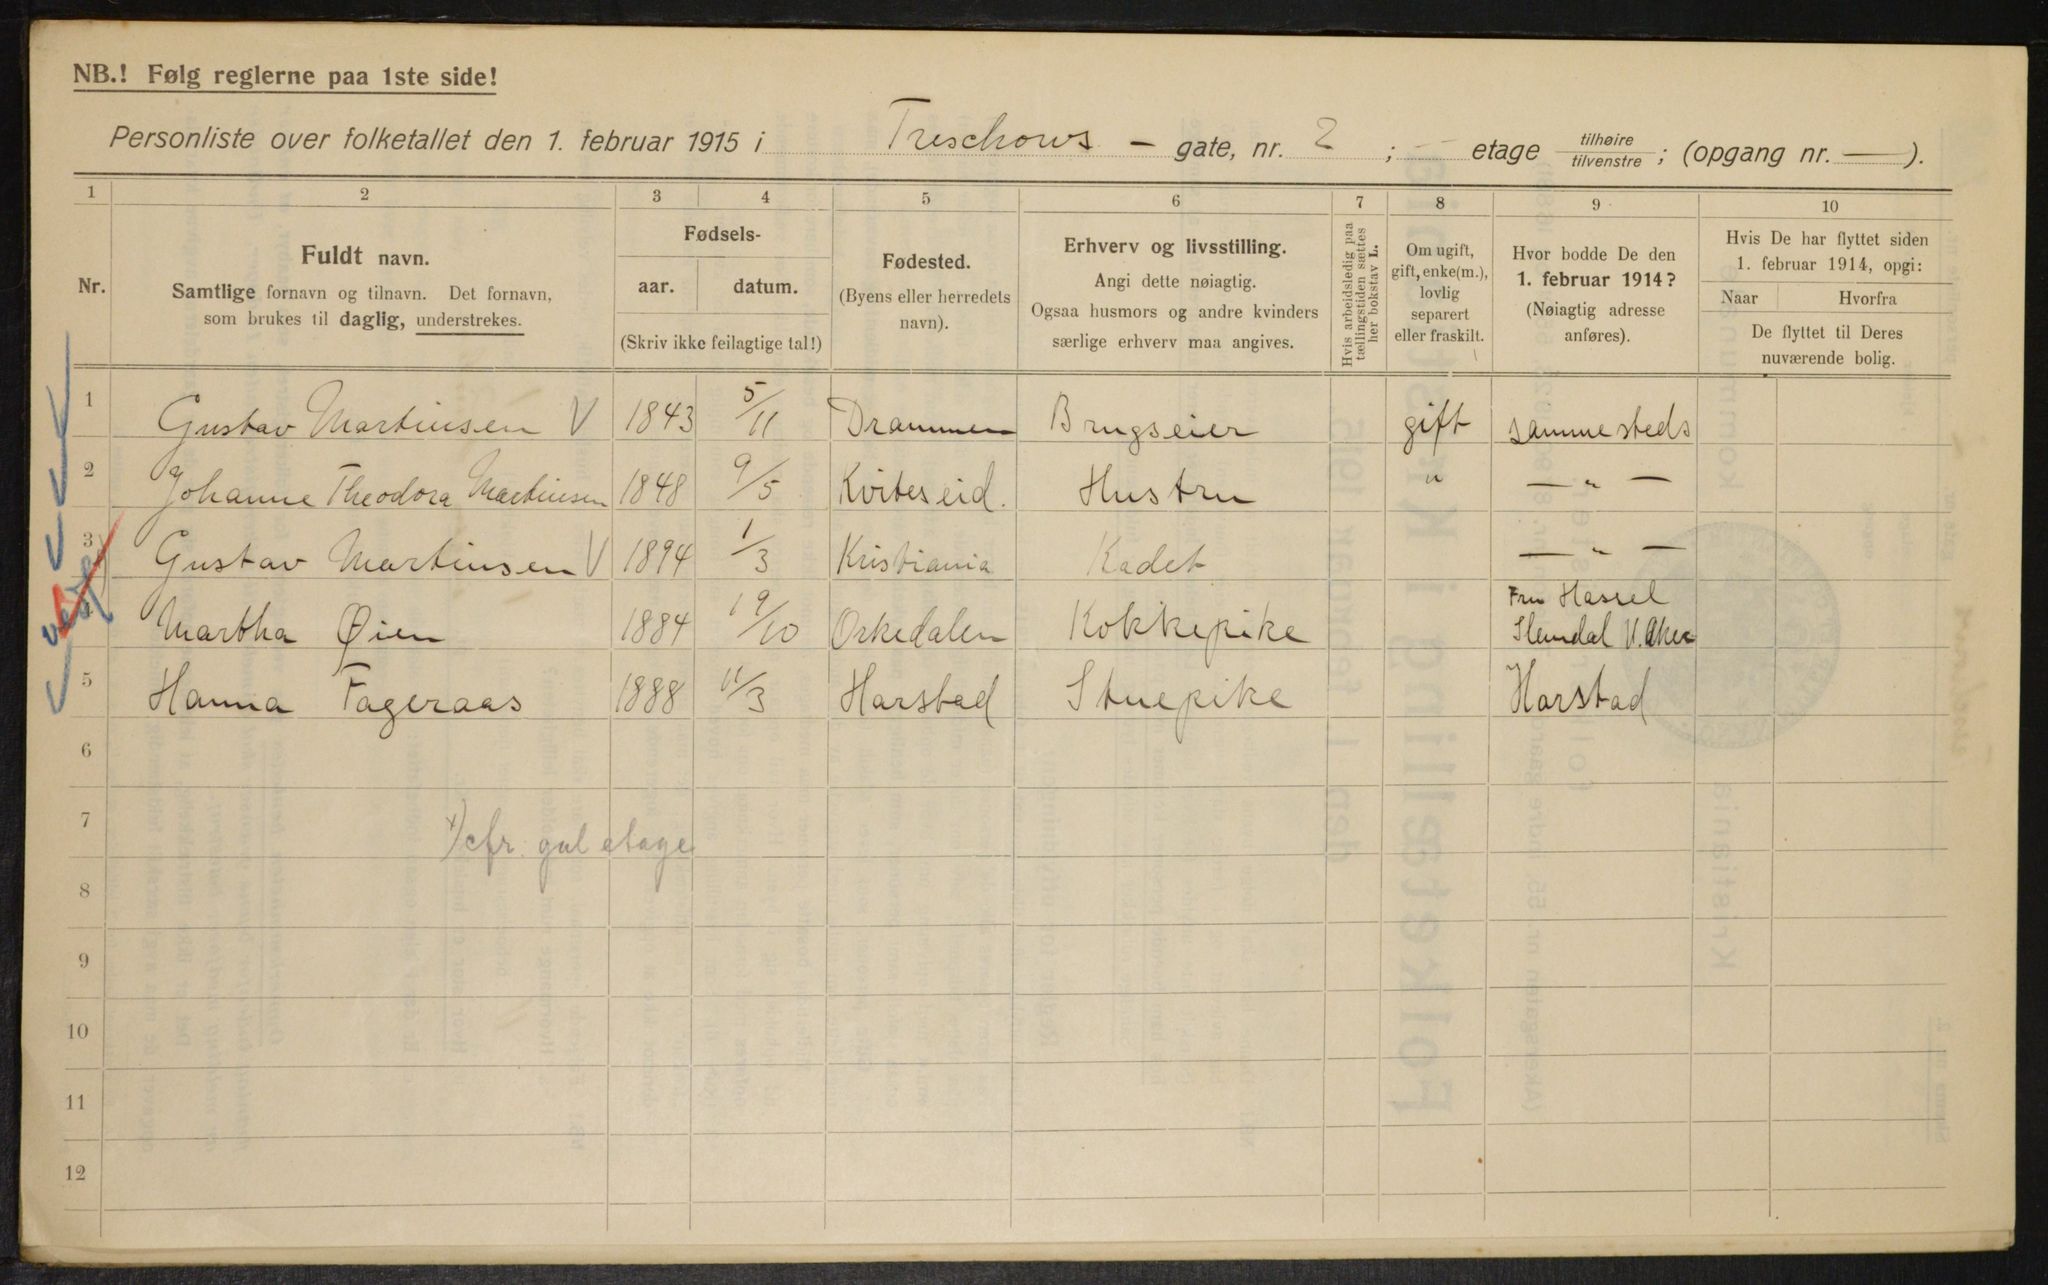 NB.! Følg reglerne paa 1ste side!
Personliste over folketallet den 1. februar 1915 i Treschows - gate, nr. 2 ; — etage tilhøire / tilvenstre ; (opgang nr. — ).
1 2 3 4 5 6 7 8 9 10
Nr.
Fuldt navn.
Samtlige fornavn og tilnavn. Det fornavn,
som brukes til daglig, understrekes.
Fødsels-
aar. datum.
(Skriv ikke feilagtige tal!)
Fødested.
(Byens eller herredets
navn).
Erhverv og livsstilling.
Angi dette nøiagtig.
Ogsaa husmors og andre kvinders
særlige erhverv maa angives.
Hvis arbeidsledig paa
tællingstiden sættes
her bokstav L.
Om ugift,
gift, enke(m.),
lovlig
separert
eller fraskilt.
Hvor bodde De den
1. februar 1914?
(Nøiagtig adresse
anføres).
Hvis De har flyttet siden
1. februar 1914, opgi:
Naar Hvorfra
De flyttet til Deres
nuværende bolig.
1 Gustav Martinsen V 1843 5/11 Drammen Brugseier gift sammesteds
2 Johanne Theodora Martinsen 1848 9/5 Kviteseid. Hustru " — " —
3 Gustav Martinsen V 1894 1/3 Kristiania Kadet — " —
4 Martha Øien 1884 19/10 Orkedalen Kokkepike Fru Hassel
Slemdal V. Aker
5 Hanna Fageraas 1888 11/3 Harstad Stuepike Harstad
6
7
cfr. gul etage
8
9
10
11
12